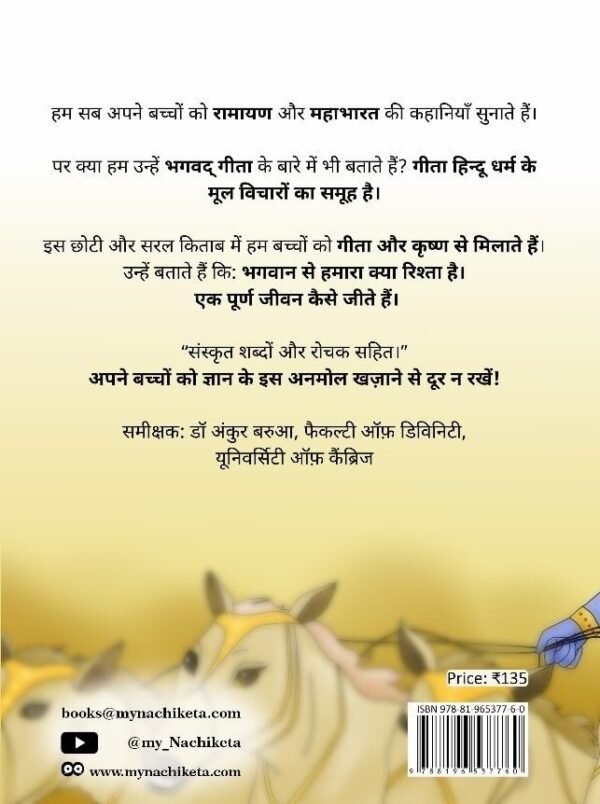 हम सब अपने बच्चों को रामायण और महाभारत की कहानियाँ सुनाते हैं।
पर क्या हम उन्हें भगवद् गीता के बारे में भी बताते हैं? गीता हिन्दू धर्म के
मूल विचारों का समूह है।
इस छोटी और सरल किताब में हम बच्चों को गीता और कृष्ण से मिलाते हैं।
उन्हें बताते हैं कि: भगवान से हमारा क्या रिश्ता है।
एक पूर्ण जीवन कैसे जीते हैं।
“संस्कृत शब्दों और रोचक सहित।”
अपने बच्चों को ज्ञान के इस अनमोल खज़ाने से दूर न रखें!
समीक्षक: डॉ अंकुर बरुआ, फैकल्टी ऑफ़ डिविनिटी,
यूनिवर्सिटी ऑफ़ कैंब्रिज
Price: ₹135
books@mynachiketa.com
@my_Nachiketa
www.mynachiketa.com
ISBN 978-81-965377-6-0
9 788196 537760